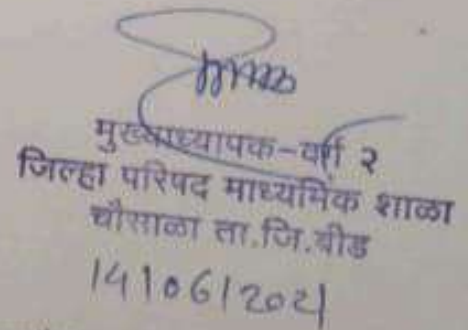 मुख्याध्यापक-वर्ग २
जिल्हा परिषद माध्यमिक शाळा
चौसाळा ता.जि.बीड
14/06/2021